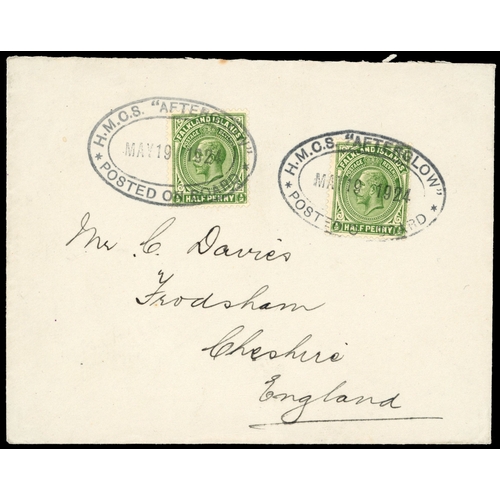 H.M.C.S. "AFTERGLOW"
MAY 19 1924
* POSTED ON BOARD *
FALKLAND ISLANDS
HALF PENNY
H.M.C.S. "AFTERGLOW"
MAY 19 1924
* POSTED ON BOARD *
FALKLAND ISLANDS
HALF PENNY
Mr C. Davies
Frodsham
Cheshire
England